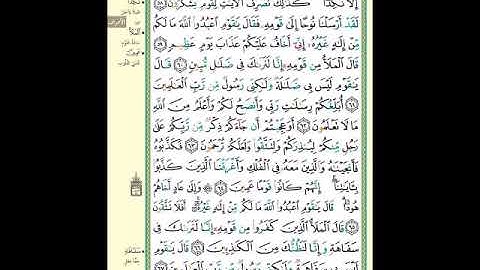 إِلَّا نَكِدًا كَذَٰلِكَ نُصَرِّفُ ٱلْءَايَٰتِ لِقَوْمٍ يَشْكُرُونَ ٥٨
لَقَدْ أَرْسَلْنَا نُوحًا إِلَىٰ قَوْمِهِۦ فَقَالَ يَٰقَوْمِ ٱعْبُدُوا۟ ٱللَّهَ مَا لَكُم
مِّنْ إِلَٰهٍ غَيْرُهُۥٓ إِنِّىٓ أَخَافُ عَلَيْكُمْ عَذَابَ يَوْمٍ عَظِيمٍ ٥٩
قَالَ ٱلْمَلَأُ مِن قَوْمِهِۦٓ إِنَّا لَنَرَىٰكَ فِى ضَلَٰلٍ مُّبِينٍ ٦٠ قَالَ
يَٰقَوْمِ لَيْسَ بِى ضَلَٰلَةٌ وَلَٰكِنِّى رَسُولٌ مِّن رَّبِّ ٱلْعَٰلَمِينَ
٦١ أُبَلِّغُكُمْ رِسَٰلَٰتِ رَبِّى وَأَنصَحُ لَكُمْ وَأَعْلَمُ مِنَ ٱللَّهِ
مَا لَا تَعْلَمُونَ ٦٢ أَوَعَجِبْتُمْ أَن جَآءَكُمْ ذِكْرٌ مِّن رَّبِّكُمْ عَلَىٰ
رَجُلٍ مِّنكُمْ لِيُنذِرَكُمْ وَلِتَتَّقُوا۟ وَلَعَلَّكُمْ تُرْحَمُونَ ٦٣ فَكَذَّبُوهُ
فَأَنجَيْنَٰهُ وَٱلَّذِينَ مَعَهُۥ فِى ٱلْفُلْكِ وَأَغْرَقْنَا ٱلَّذِينَ كَذَّبُوا۟
بِـَٔايَٰتِنَآ إِنَّهُمْ كَانُوا۟ قَوْمًا عَمِينَ ٦٤ ۞ وَإِلَىٰ عَادٍ أَخَاهُمْ
هُودًا قَالَ يَٰقَوْمِ ٱعْبُدُوا۟ ٱللَّهَ مَا لَكُم مِّنْ إِلَٰهٍ غَيْرُهُۥٓ أَفَلَا تَتَّقُونَ
٦٥ قَالَ ٱلْمَلَأُ ٱلَّذِينَ كَفَرُوا۟ مِن قَوْمِهِۦٓ إِنَّا لَنَرَىٰكَ فِى
سَفَاهَةٍ وَإِنَّا لَنَظُنُّكَ مِنَ ٱلْكَٰذِبِينَ ٦٦ قَالَ يَٰقَوْمِ
لَيْسَ بِى سَفَاهَةٌ وَلَٰكِنِّى رَسُولٌ مِّن رَّبِّ ٱلْعَٰلَمِينَ ٦٧